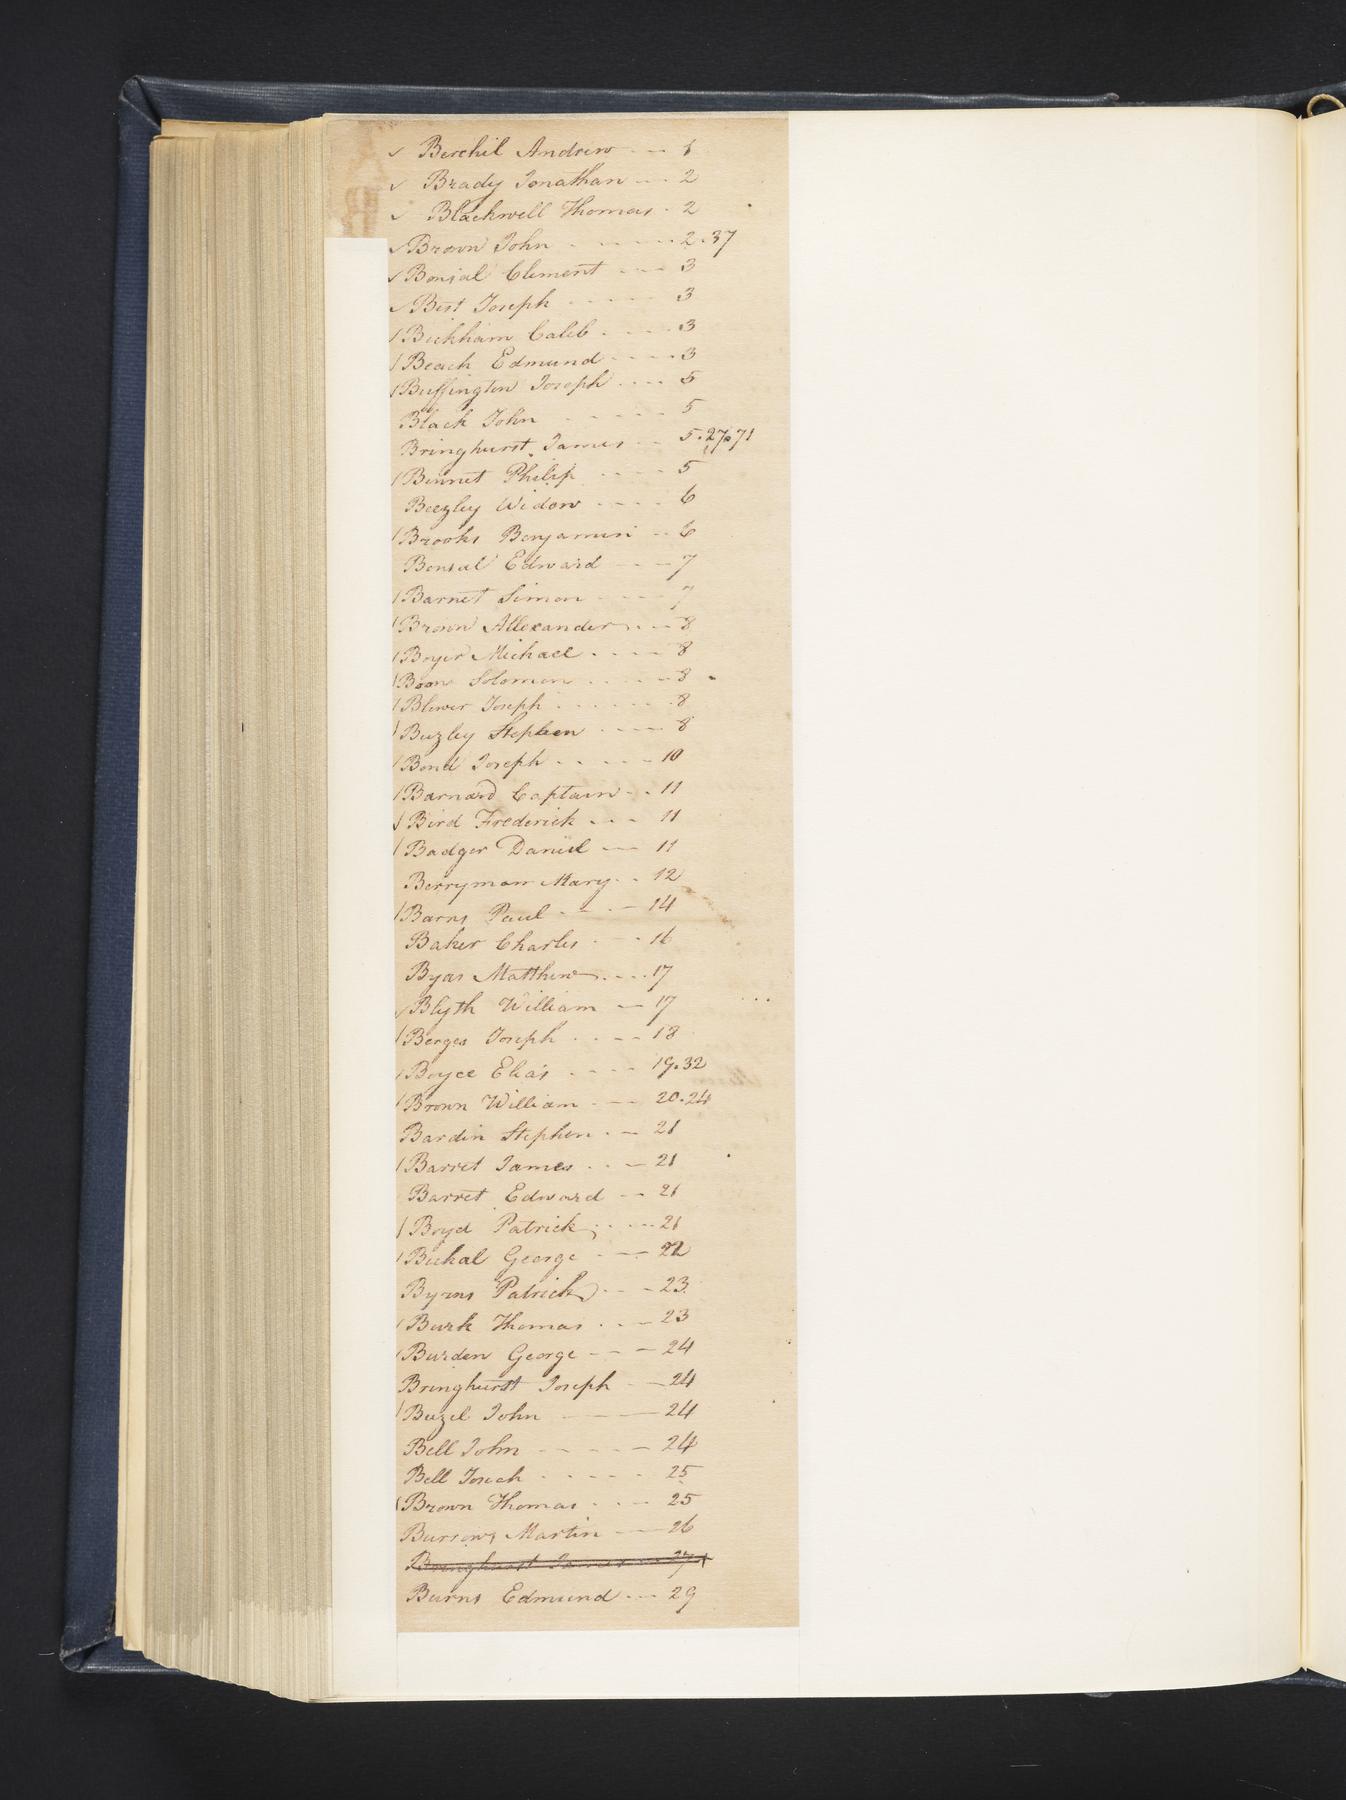 ✓ Berchil Andrew -- 1
✓ Brady Jonathan -- 2
✓ Blackwell Thomas . 2
✓ Brown John . ---- 2.37
✓ Bonsal Clement --- 3
✓ Best Joseph ----- 3
/ Bickham Caleb . --- 3
/ Beach Edmund ---- 3
/ Buffington Joseph .... 5
Black John ----- 5
Bringhurst James -- 5.27.71
/ Binnet Philip ---- 5
Beezley Widow ---- 6
/ Brooks Benjamin -- 6
Bonsal Edward --- 7
/ Barnet Simon ---- 7
/ Brown Allexander . -- 8
/ Boyer Michael . --- 8
/ Boon Solomon ..... 8
/ Blewer Joseph ...... 8
/ Buzley Stephen ---- 8
/ Bond Joseph ----- 10
/ Barnard Captain -. 11
/ Bird Frederick --- 11
/ Badger Daniel -- 11
Berryman Mary . . 12
/ Barns Paul . -- 14
Baker Charles . -. 16
Byas Matthew .... 17
✓ Blyth William -- 17
/ Berges Joseph . --- 18
/ Boyce Elias . --- 19.32
/ Brown William . -- 20.24
Bardin Stephen . - 21
/ Barret James . . - 21
Barret Edward -- 21
/ Boyd Patrick ; . --- 21
/ Bickal George . -- 22
Byrns Patrick . -- 23
/ Burk Thomas . . - 23
/ Burden George --- 24
Bringhurst Joseph -- 24
/ Buzel John ---- 24
Bell John ----- 24
Bell . ---- 25
/ Brown Thomas . . - 25
Burrows Martin -- 26
Bringhurst James -- 27
Burns Edmund --- 29